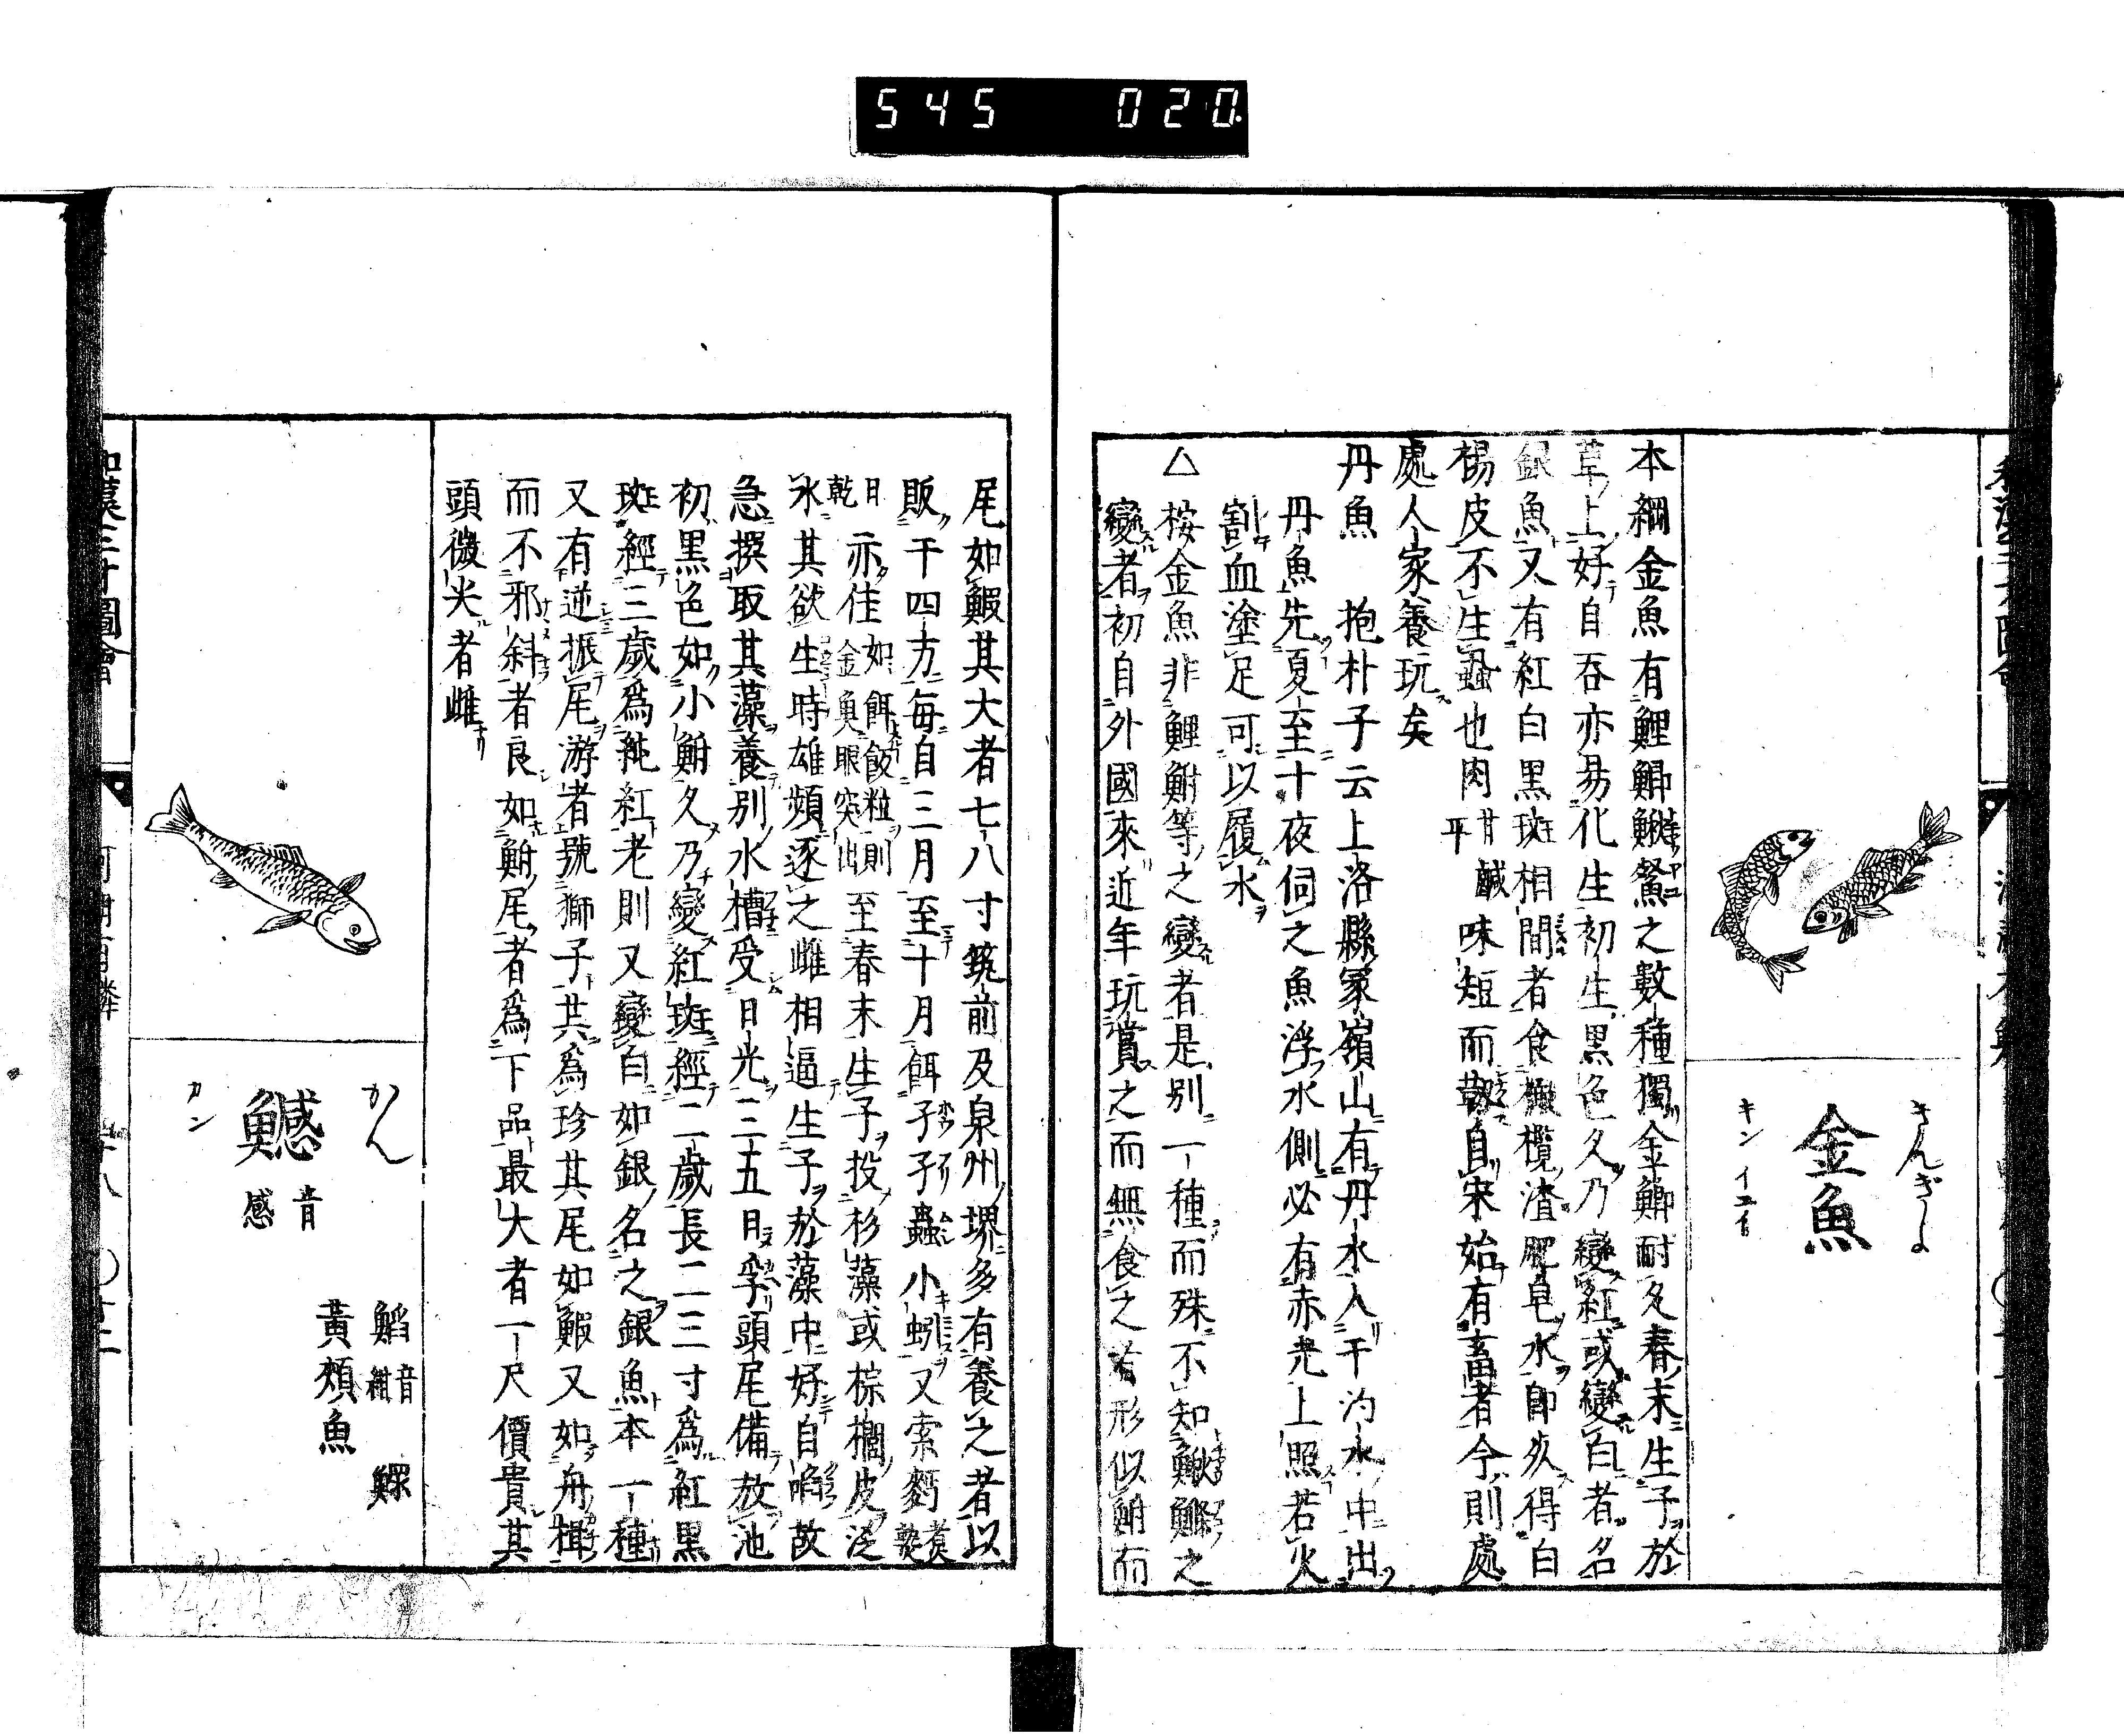 545 020
きんぎよ
金魚
キンイユイ
本綱金魚有鯉鯽鰍䱗之數種獨金鯽耐久春末生子於
草上好自吞亦易化生初生黒色久乃變紅或變白者名
銀魚又有紅白黒斑相間者食橄欖渣肥皂水即死得白
楊皮不生蝨也肉甘鹹平味短而韌自宋始有畜者今則處
處人家養玩矣
丹魚 抱朴子云上洛縣冢嶺山有丹水入于汋水中出
丹魚先夏至十夜伺之魚浮水側必有赤光上照若火
割血塗足可以履水
△按金魚非鯉鮒等之變者是別一種而殊不知鰍鰷之
變者初自外國來近年玩賞之而無食之者形似鮒而
尾如鰕其大者七八寸筑前及泉州堺多有養之者以
販于四方毎自三月至十月餌孑孑蟲小蚓又索麪煮熟
日乾亦佳如餌飯粒則金魚眼突出至春末生子投杉藻或棕櫚皮泛
水其欲生時雄頻逐之雌相逼生子於藻中好自啗故
急撰取其藻養別水槽受日光三五日孚頭尾備放池
初黒色如小鮒久乃變紅斑經二歲長二三寸爲紅黒
斑經三歲爲純紅老則又變白如銀名之銀魚本一種
又有逆振尾游者號獅子共爲珍其尾如鰕又如舟楫
而不邪斜者良如鮒尾者爲下品最大者一尺價貴其
頭微尖者雌
かん
鱤
音感
カン
䱤音紺 鰥
黃頰魚